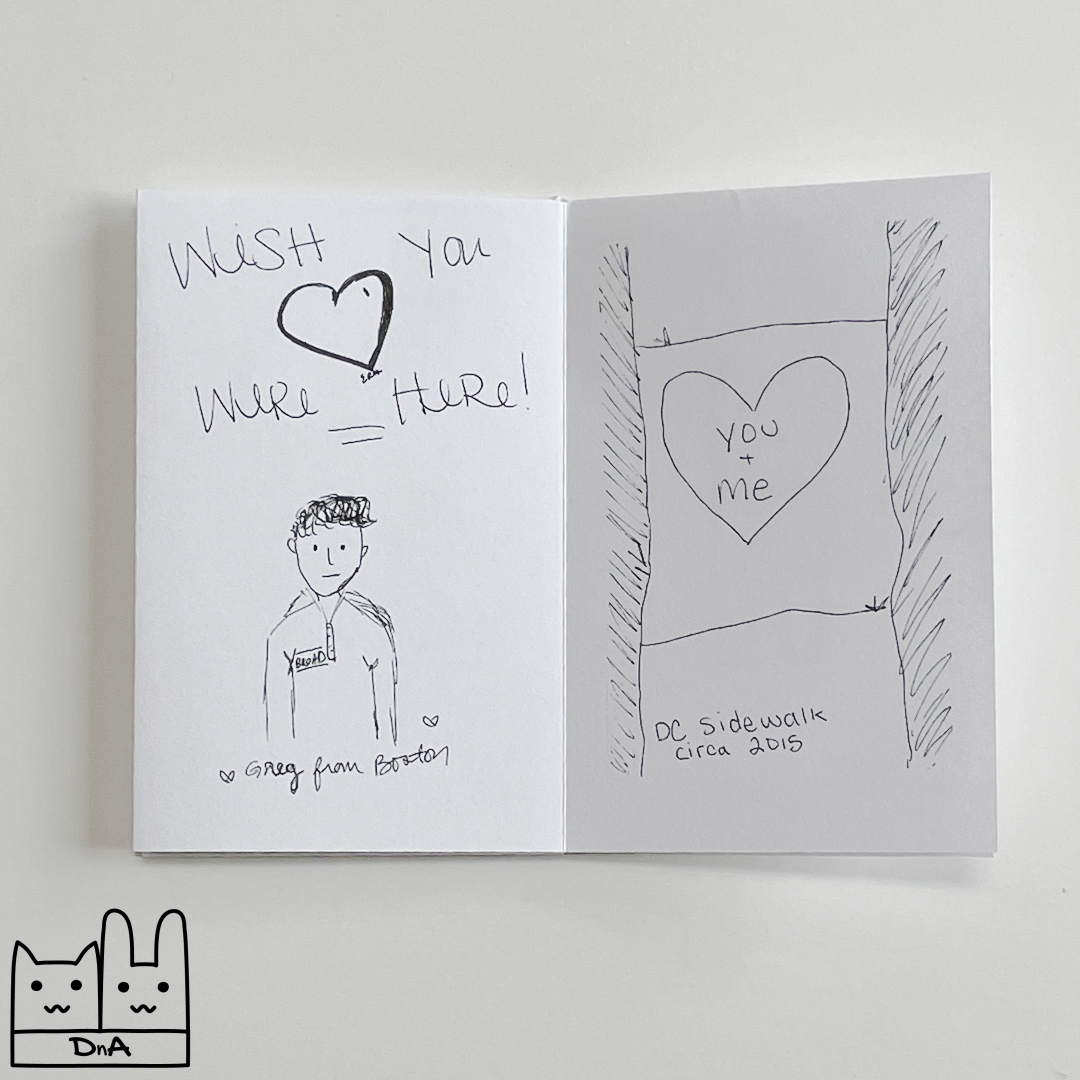 WISH YOU
WERE HERE!
BROAD
Greg from Boston
YOU
+
Me
DC Sidewalk
circa 2015
DnA